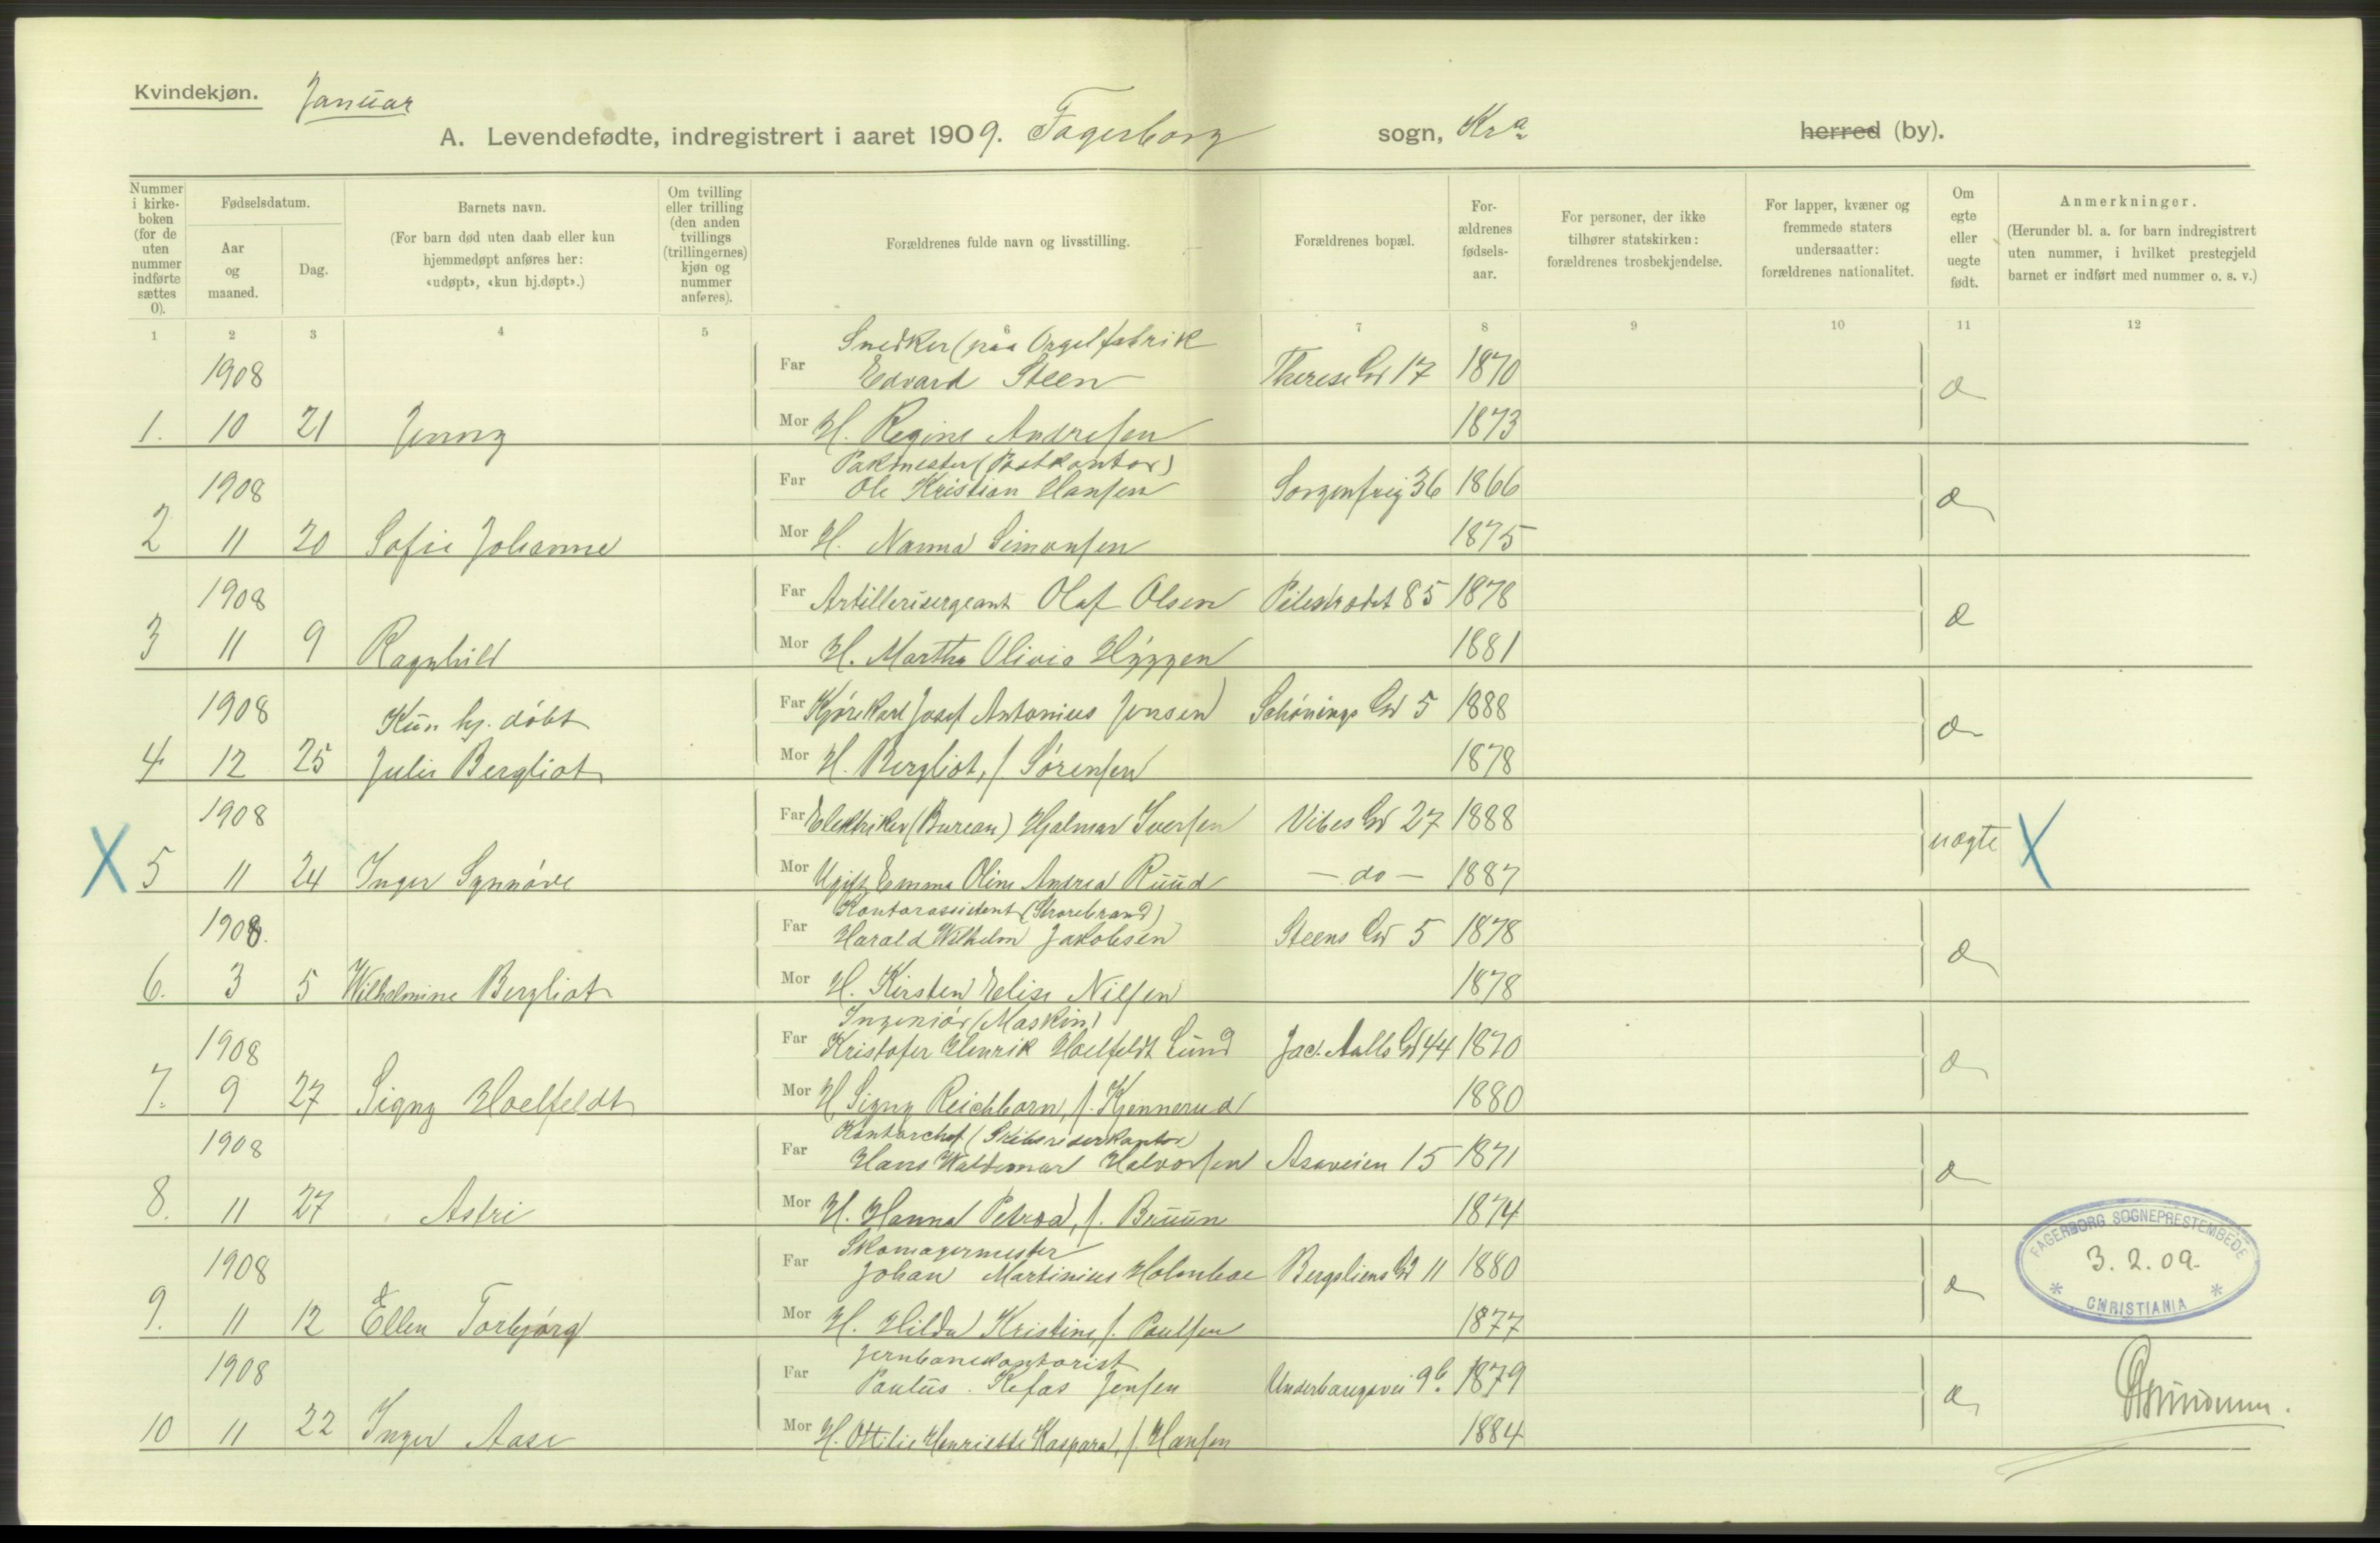 Kvindekjøn. Januar
A. Levendefødte, indregistrert i aaret 1909. Fagerborg sogn, Kra herred (by).
Nummer i kirke-boken (for de uten nummer indførte sættes 0).
Fødselsdatum.
Aar og maaned.
Dag.
Barnets navn.
(For barn død uten daab eller kun hjemmedøpt anføres her: «udøpt», «kun hj.døpt».)
Om tvilling eller trilling (den anden tvillings (trillingernes) kjøn og nummer anføres).
Forældrenes fulde navn og livsstilling.
Forældrenes bopæl.
For-ældrenes fødsels-aar.
For personer, der ikke tilhører statskirken: forældrenes trosbekjendelse.
For lapper, kvæner og fremmede staters undersaatter: forældrenes nationalitet.
Om egte eller uegte født.
Anmerkninger.
(Herunder bl. a. for barn indregistrert uten nummer, i hvilket prestegjeld barnet er indført med nummer o. s. v.)
1 2 3 4 5 6 7 8 9 10 11 12
Snedker (paa Orgelfabrik
1908 Far Edvard Steen Therese Gd 17 1870 æ
1. 10 21 Jenny Mor H. Regine Andresen 1873
Pakmester (Postkontor)
1908 Far Ole Kristian Hansen Sorgenfrig 36 1866 æ
2 11 20 Sofie Johanne Mor H. Nanna Simonsen 1875
1908 Far Artillerisergeant Olaf Olsen Pilestrædet 85 1878 æ
3 11 9 Ragnhild Mor H. Martha Olivia Hyggen 1881
1908 Kun hj. døbt Far Kjørekarl Josef Antonius Jensen Schønings Gd 5 1888 æ
4 12 25 Julie Bergliot Mor H. Bergliot, f Sørensen 1878
1908 Far Elektriker (Bureau) Hjalmar Iversen Vibes Gd 27 1888 uægte X
X 5 11 24 Inger Synnøve Mor Ugift Emma Oline Andrea Ruud – do – 1887
Kontorassistent (Storebrand)
1908. Far Harald Wilhelm Jakobsen Steens Gd 5 1878 æ
6. 3 5 Wilhelmine Bergliot Mor H. Kirsten Elise Nilsen 1878
Ingeniør (Maskin)
1908 Far Kristofer Henrik Hoelfeldt Lund Jac. Aalls Gd 44 1870 æ
7. 9 27 Signy Hoelfeldt Mor H. Signy Reichborn, f. Kjennerud 1880
Kontorchef (
1908 Far Hans Waldemar Halvorsen Asaveien 15 1871 æ
8. 11 27 Astri Mor H. Hanna Petrea, f. Bruun 1874
Skomagermester
1908 Far Johan Martinius Holmboe Bergsliens Gd 11 1880 æ
9. 11 12 Ellen Torbjørg Mor H. Hilda Kristine, f. Paulsen 1877
Jernbanekontorist
1908 Far Paulus Kefas Jensen Underhaugsvei 9b. 1879 æ
10 11 22 Inger Aase Mor H. Ottilie Henriette Kaspara, f. Hansen 1884
FAGERBORG SOGNEPRESTEMBEDE
3. 2. 09.
* CHRISTIANIA *